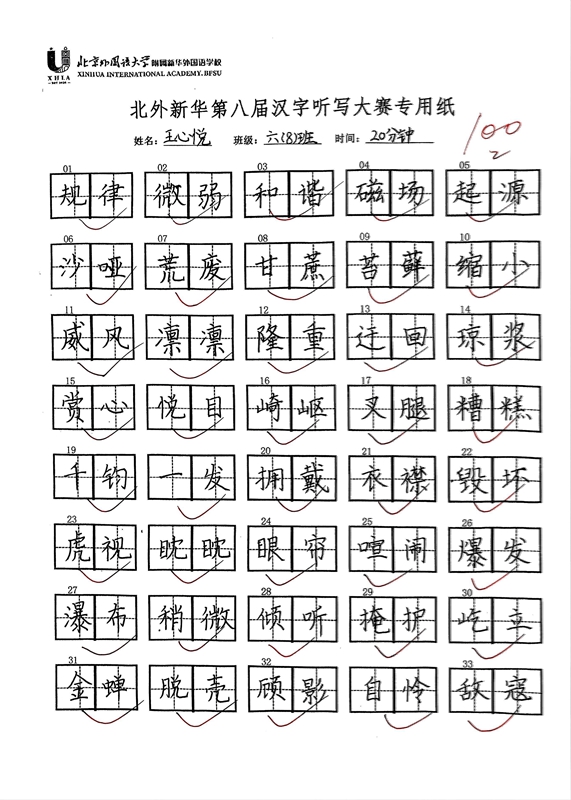 XHIA
北京外国语大学附属新华外国语学校
XINHUA INTERNATIONAL ACADEMY, BFSU
北外新华第八届汉字听写大赛专用纸
姓名：王心悦 班级：六(8)班 时间：20分钟
100
01 02 03 04 05
规律 微弱 和谐 磁场 起源
06 07 08 09 10
沙哑 荒废 甘蔗 苔藓 缩小
11 12 13 14
威风 凛凛 隆重 迂回 琼浆
15 16 17 18
赏心 悦目 崎岖 叉腿 糟糕
19 20 21 22
千钧 一发 拥戴 衣襟 毁坏
23 24 25 26
虎视 眈眈 眼帘 喧闹 爆发
27 28 29 30
瀑布 稍微 倾听 掩护 屹立
31 32 33
金蝉 脱壳 顾影 自怜 敌寇